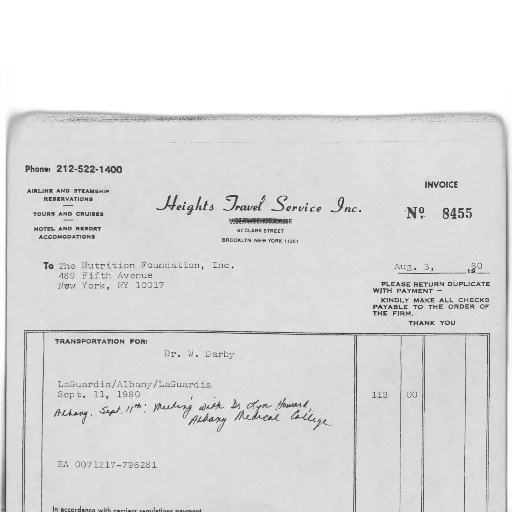 Phone: 212-522-1400
AIRLINE AND STEAMSHIP
RESERVATIONS
TOURS AND CRUISES
HOTEL AND RESORT
ACCOMODATIONS
Heights Travel Service Inc.
57 CLARK STREET
BROOKLYN, NEW YORK 11201
INVOICE
No. 8455
To The Nutrition Foundation, Inc.
489 Fifth Avenue
New York, NY 10017
Aug. 3, 1980
PLEASE RETURN DUPLICATE
WITH PAYMENT —
KINDLY MAKE ALL CHECKS
PAYABLE TO THE ORDER OF
THE FIRM.
THANK YOU
TRANSPORTATION FOR:
Dr. W. Darby
LaGuardia/Albany/LaGuardia
Sept. 11, 1980 113 00
Albany. Sept. 11th: Meeting with Dr. Lyn Howard,
Albany Medical College
EA 0071217-796281
In accordance with carriers regulations payment